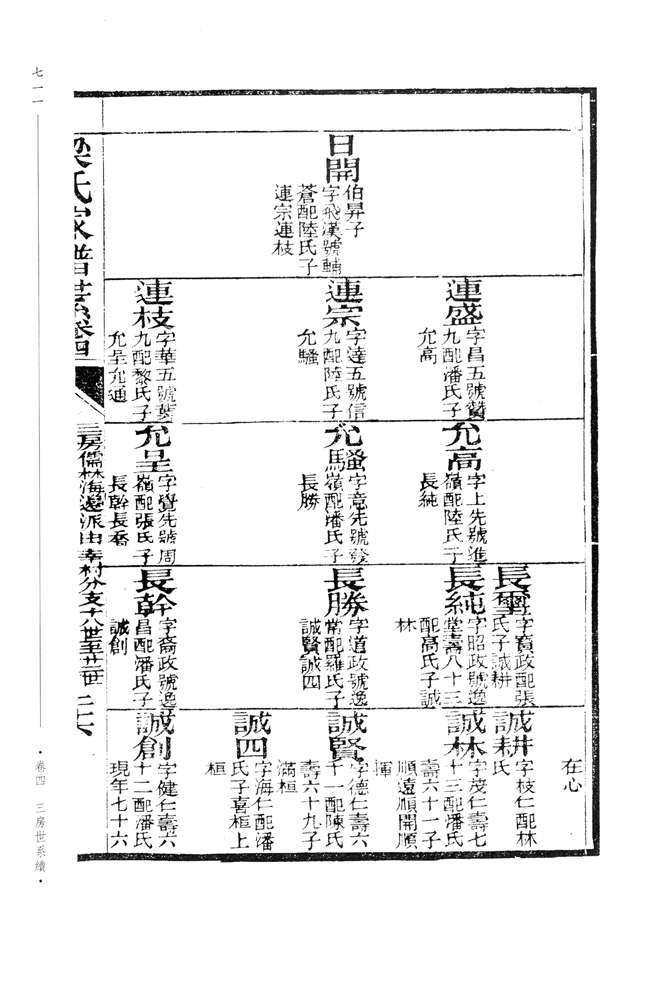 日開
伯昇子
字飛漢號輔
蒼配陸氏子
連宗連枝
連盛
字昌五號贊
九配潘氏子
允高
連宗
字達五號信
九配陸氏子
允騷
連枝
字華五號葉
九配黎氏子
允呈允通
允高
字上先號進
嶺配陸氏子
長純
允騷
字意先號發
嶺配潘氏子
長勝
允呈
字覺先號周
嶺配張氏子
長幹長喬
長璽
字寶政配張
氏子誠耕
長純
字昭政號逸
堂壽八十三
配高氏子誠
林
長勝
字道政號逸
常配羅氏子
誠賢誠四
長幹
字裔政號逸
昌配潘氏子
誠創
在心
誠耕
字枝仁配林
氏
誠林
字茂仁壽七
十三配潘氏
壽六十一子
順遠順開順
揮
誠賢
字德仁壽六
十一配陳氏
壽六十九子
滿桓
誠四
字海仁配潘
氏子喜桓上
桓
誠創
字健仁壽六
十二配潘氏
現年七十六
梁氏家譜世系卷四
三房儒林海邊派由幸村分支十八世至廿二世
二六
七一一
·卷四 三房世系續·